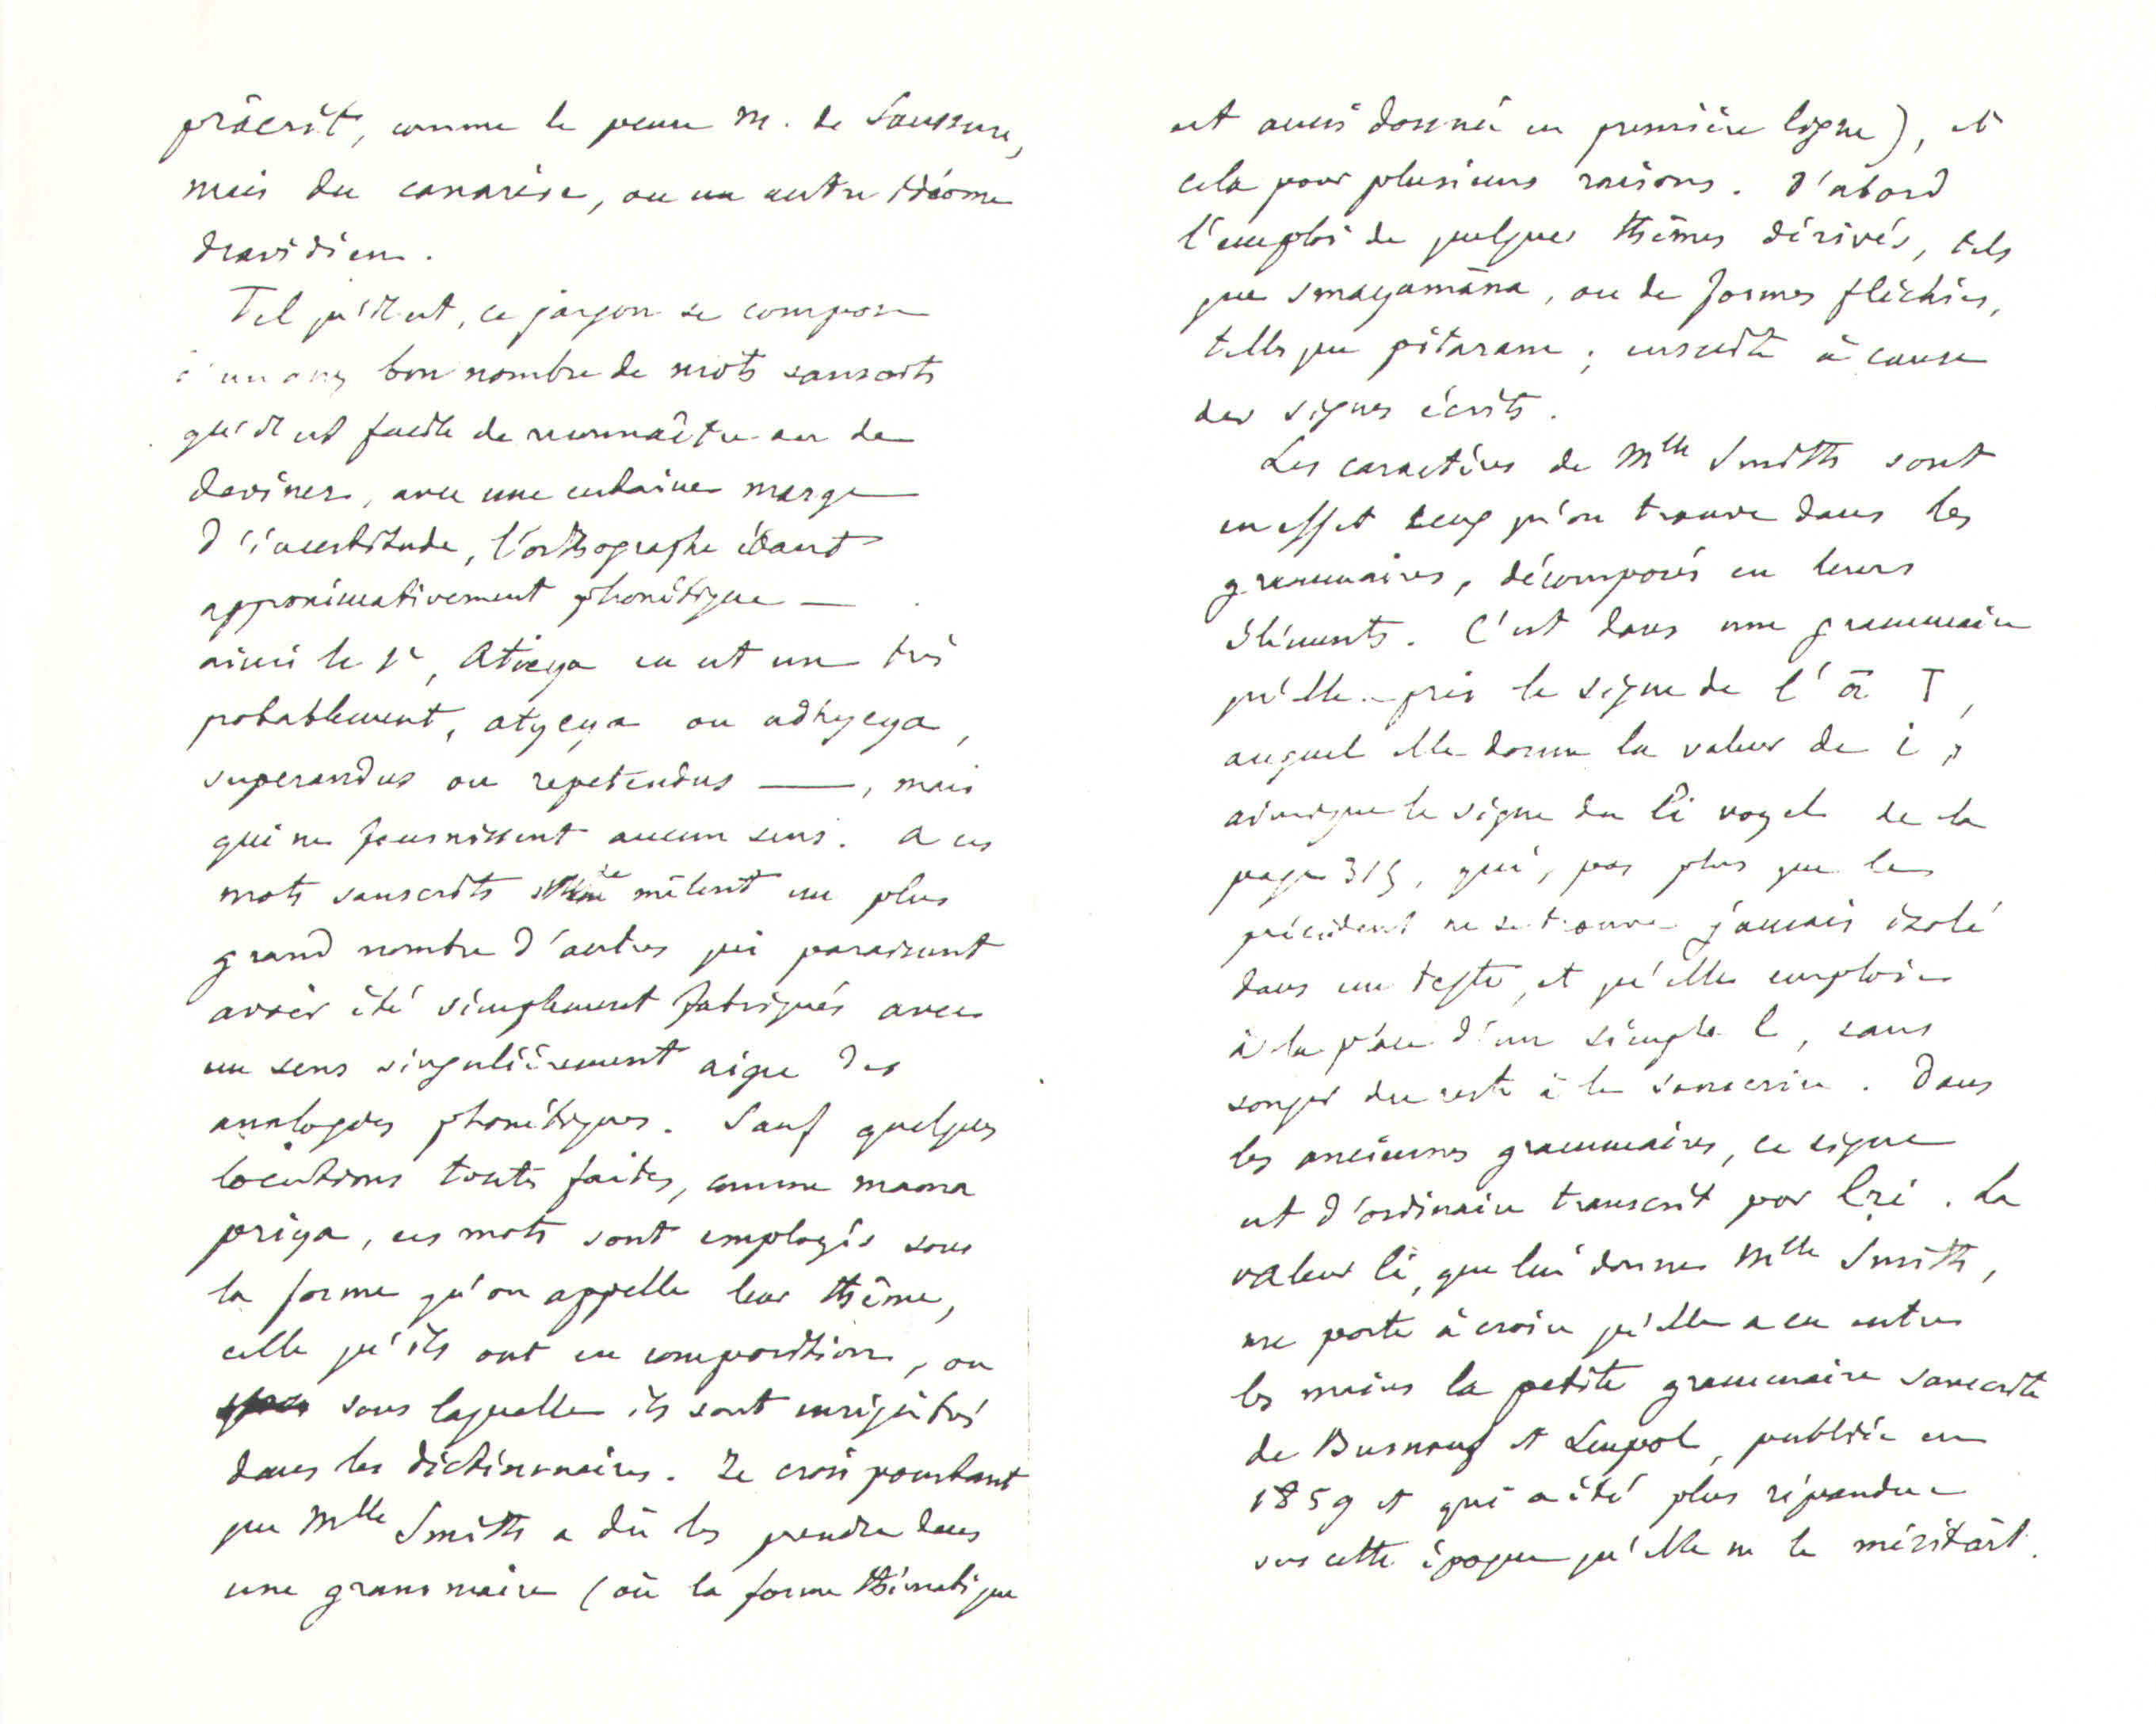 prâcrit, comme le pense M. de Saussure,
mais du canarèse, ou un autre idiome
dravidien.
Tel qu'il est, ce jargon se compose
bon nombre de mots sanscrits
qu'il est facile de reconnaître ou de
deviner, avec une certaine marge
d'incertitude, l'orthographe étant
approximativement phonétique —
ainsi le 1er, Atieya en est un très
probablement, atyeya ou adhyeya,
superandus ou repetendus —, mais
qui ne fournissent aucun sens. A ces
mots sanscrits se mêlent un plus
grand nombre d'autres qui paraissent
avoir été simplement fabriqués avec
un sens singulièrement aigu des
analogies phonétiques. Sauf quelques
locutions toutes faites, comme mama
priya, ces mots sont employés sous
la forme qu'on appelle leur thème,
celle qu'ils ont en composition, ou
sous laquelle ils sont enregistrés
dans les dictionnaires. Je crois pourtant
que Mlle Smith a dû les prendre dans
une grammaire (où la forme thématique
est aussi donnée en première ligne), et
cela pour plusieurs raisons. D'abord
l'emploi de quelques thèmes dérivés, tels
que smayamâna, ou de formes fléchies,
telles que pitaram ; ensuite à cause
des signes écrits.
Les caractères de Mlle Smith sont
en effet ceux qu'on trouve dans les
grammaires, décomposés en leurs
éléments. C'est dans une grammaire
qu'elle a pris le signe de l'ā T,
auquel elle donne la valeur de i,
ainsi que le signe du li voyelle de la
page 315, qui, pas plus que le
précédent ne se trouve jamais isolé
dans un texte, et qu'elle emploie
à la place d'un simple l, sans
songer du reste à le sanscrire. Dans
les anciennes grammaires, ce signe
est d'ordinaire transcrit par lri. La
valeur li, que lui donne Mlle Smith,
me porte à croire qu'elle a eu entre
les mains la petite grammaire sanscrite
de Burnouf et Leupol, publiée en
1859 et qui a été plus répandue
vers cette époque qu'elle ne le méritait.